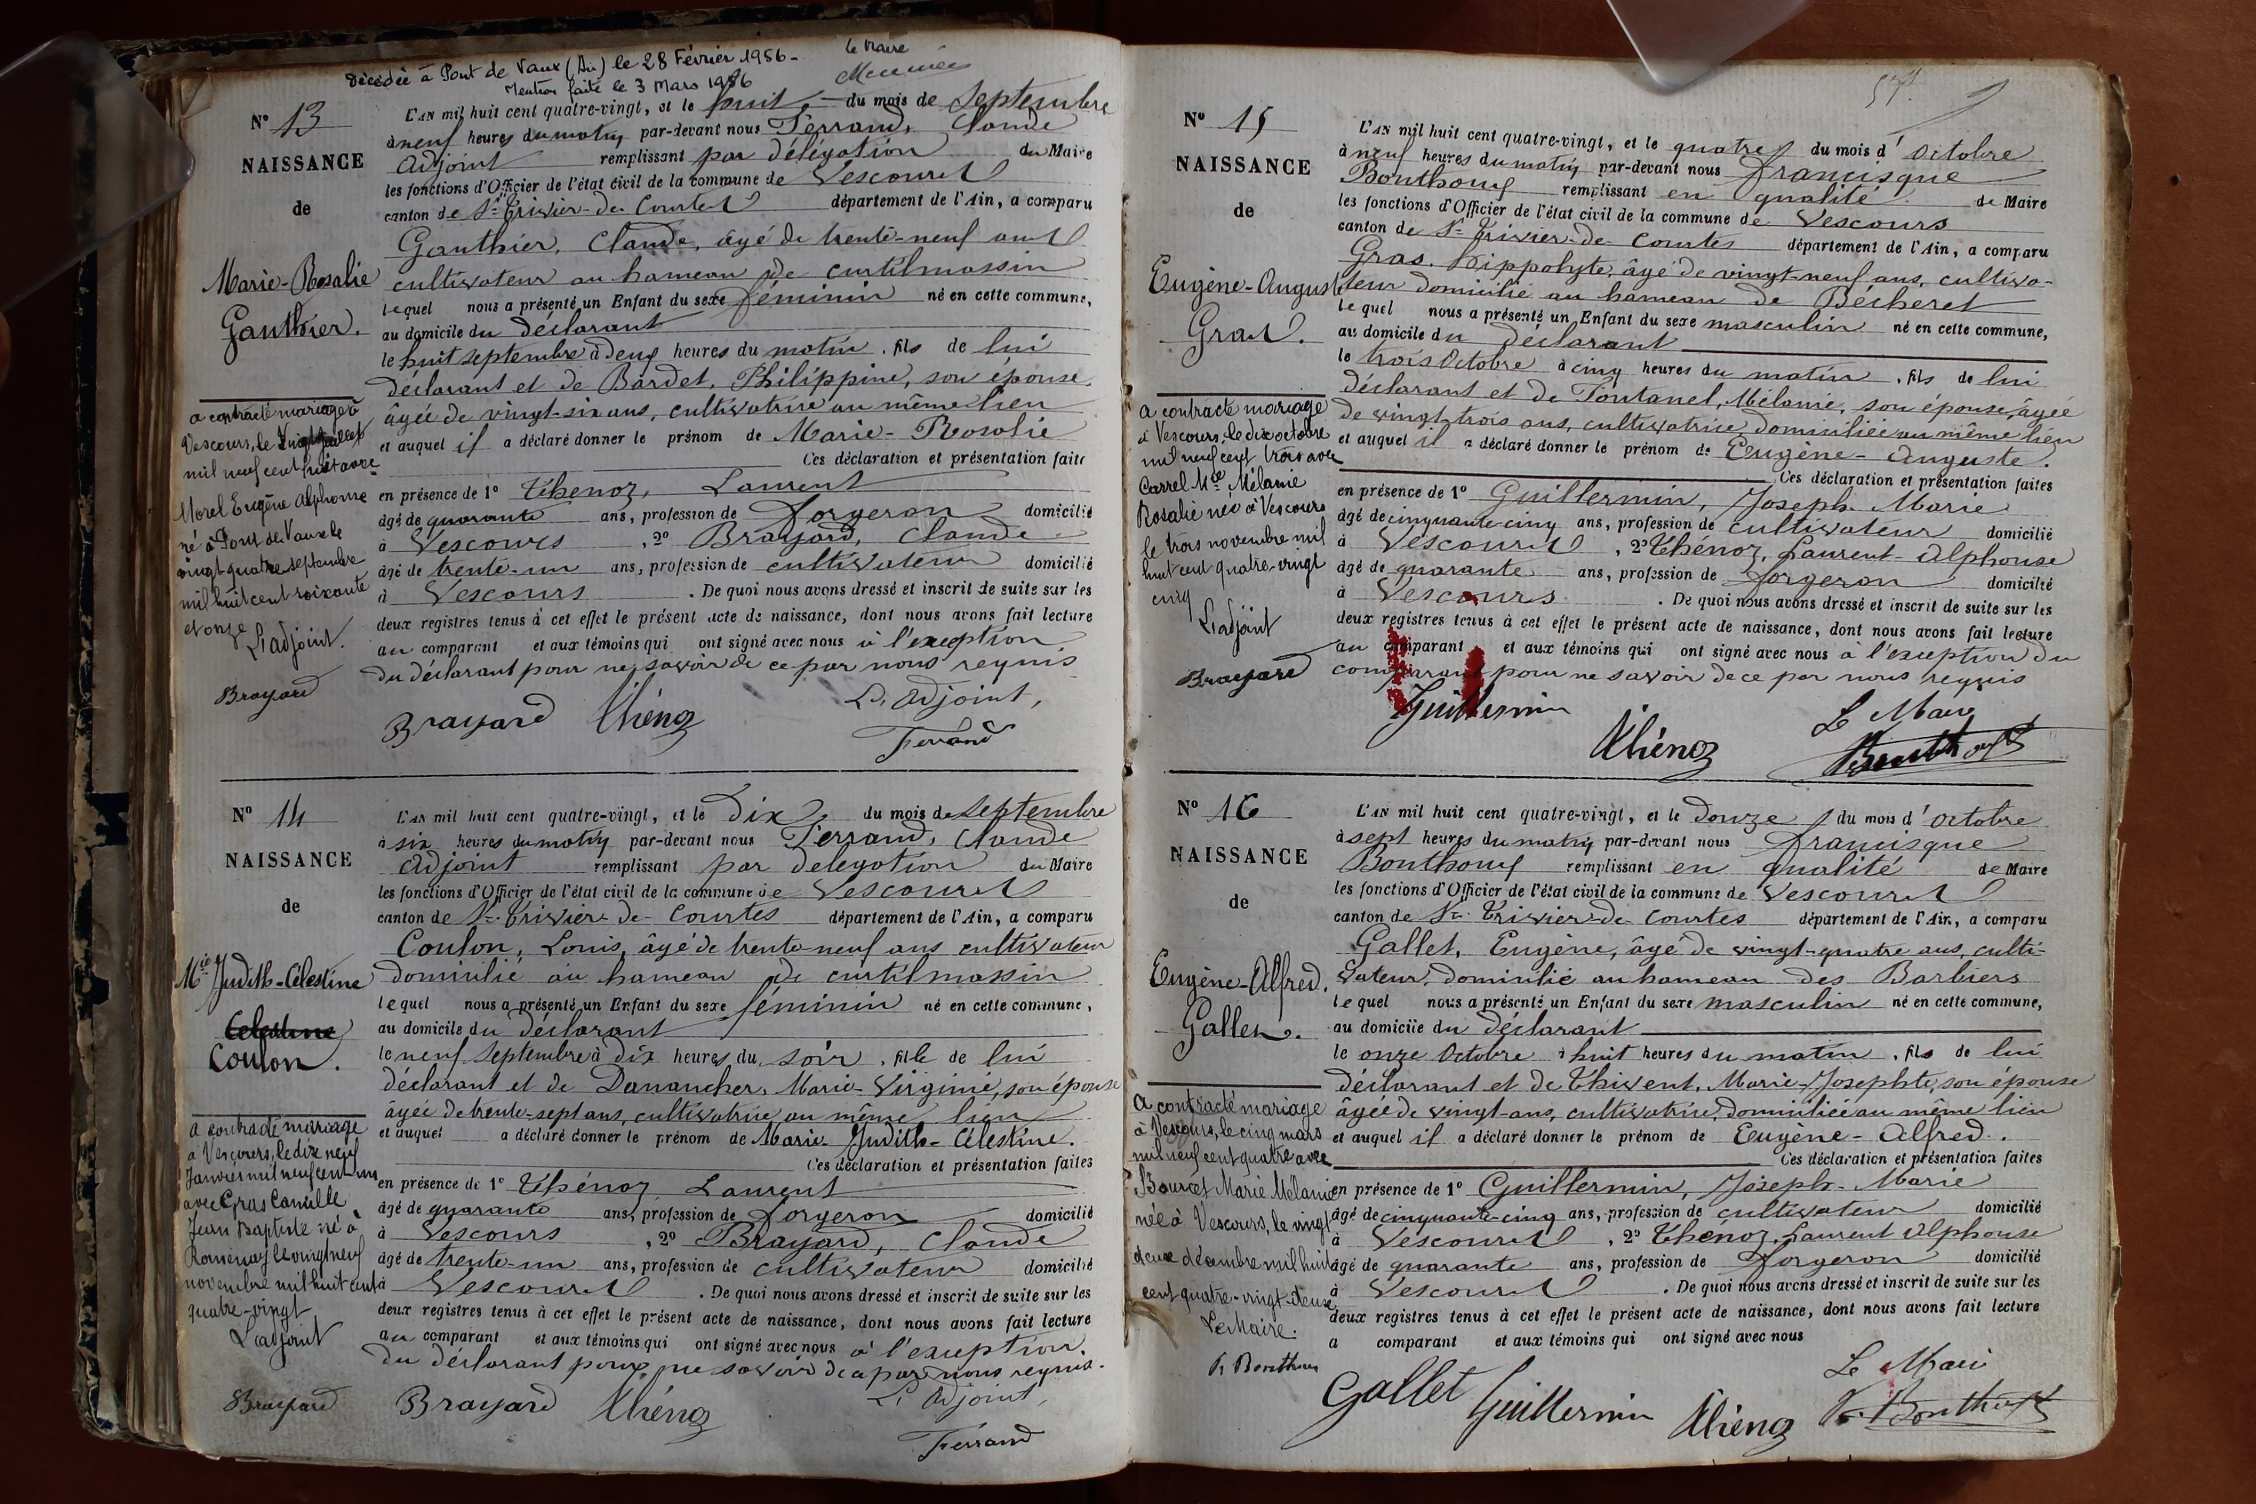 Décédée à Pont de Vaux (Ain) le 28 Février 1956 -
Mention faite le 3 Mars 1956
le Maire
N° 13
NAISSANCE
de
Marie-Rosalie
Gauthier.
a contracté mariage à
Vescours, le vingt juillet
mil neuf cent huit avec
Morel Eugène Alphonse
né à Pont de Vaux le
vingt quatre septembre
mil huit cent soixante
et onze
L'adjoint.
Brayard
L'AN mil huit cent quatre-vingt, et le huit du mois de Septembre
à neuf heures du matin par-devant nous Ferrand, Claude
Adjoint remplissant par délégation du Maire
les fonctions d'Officier de l'état civil de la commune de Vescours
canton de St Trivier-de-Courtes département de l'Ain, a comparu
Gauthier, Claude, âgé de trente-neuf ans
cultivateur au hameau de curtilmassin
lequel nous a présenté un Enfant du sexe féminin né en cette commune,
au domicile du déclarant
le huit septembre à deux heures du matin, fils de lui
déclarant et de Bardet, Philippine, son épouse,
âgée de vingt-six ans, cultivatrice au même lieu
et auquel il a déclaré donner le prénom de Marie-Rosalie
Ces déclaration et présentation faite
en présence de 1° Thénoz, Laurent
âgé de quarante ans, profession de forgeron domicilié
à Vescours, 2° Brayard, Claude
âgé de trente-un ans, profession de cultivateur domicilié
à Vescours. De quoi nous avons dressé et inscrit de suite sur les
deux registres tenus à cet effet le présent acte de naissance, dont nous avons fait lecture
au comparant et aux témoins qui ont signé avec nous à l'exception
du déclarant pour ne savoir de ce par nous requis
Brayard Thénoz L'Adjoint,
Ferrand
N° 14
NAISSANCE
de
Mie Judith-Célestine
Celestine
Coulon.
a contracté mariage
à Vescours, le dix neuf
Janvier mil neuf cent un
avec Gras Camille
Jean Baptiste né à
Romenay le vingt neuf
novembre mil huit cent
quatre-vingt
L'adjoint
Brayard
L'AN mil huit cent quatre-vingt, et le Dix du mois de Septembre
à six heures du matin par-devant nous Ferrand, Claude
Adjoint remplissant par délégation du Maire
les fonctions d'Officier de l'état civil de la commune de Vescours
canton de St Trivier-de-Courtes département de l'Ain, a comparu
Coulon, Louis, âgé de trente-neuf ans cultivateur
domicilié au hameau de curtilmassin
lequel nous a présenté un Enfant du sexe féminin né en cette commune,
au domicile du déclarant
le neuf Septembre à dix heures du soir, fille de lui
déclarant et de Danancher, Marie-Virginie, son épouse
âgée de trente-sept ans, cultivatrice au même lieu
et auquel a déclaré donner le prénom de Marie-Judith-Célestine.
Ces déclaration et présentation faites
en présence de 1° Thénoz, Laurent
âgé de quarante ans, profession de forgeron domicilié
à Vescours, 2° Brayard, Claude
âgé de trente-un ans, profession de cultivateur domicilié
à Vescours. De quoi nous avons dressé et inscrit de suite sur les
deux registres tenus à cet effet le présent acte de naissance, dont nous avons fait lecture
au comparant et aux témoins qui ont signé avec nous à l'exception,
du déclarant pour ne savoir de ce par nous requis.
Brayard Thénoz L'Adjoint,
Ferrand
N° 15
NAISSANCE
de
Eugène-Auguste
Gras.
a contracté mariage
à Vescours, le dix octobre
mil neuf cent trois avec
Carrel Mie Mélanie
Rosalie née à Vescours
le trois novembre mil
huit cent quatre-vingt
cinq
L'adjoint
Brayard
L'AN mil huit cent quatre-vingt, et le quatre du mois d'Octobre
à neuf heures du matin par-devant nous francisque
Bonthoux remplissant en qualité de Maire
les fonctions d'Officier de l'état civil de la commune de Vescours
canton de St Trivier-de-Courtes département de l'Ain, a comparu
Gras, Hippolyte, âgé de vingt-neuf ans, cultiva-
teur domicilié au hameau de Bécheret
lequel nous a présenté un Enfant du sexe masculin né en cette commune,
au domicile du déclarant
le trois Octobre à cinq heures du matin, fils de lui
déclarant et de Fontanel, Mélanie, son épouse, âgée
de vingt-trois ans, cultivatrice domiciliée au même lieu
et auquel il a déclaré donner le prénom de Eugène-Auguste.
Ces déclaration et présentation faites
en présence de 1° Guillermin, Joseph-Marie
âgé de cinquante-cinq ans, profession de cultivateur domicilié
à Vescours, 2° Thénoz, Laurent-Alphonse
âgé de quarante ans, profession de forgeron domicilié
à Vescours. De quoi nous avons dressé et inscrit de suite sur les
deux registres tenus à cet effet le présent acte de naissance, dont nous avons fait lecture
au comparant et aux témoins qui ont signé avec nous à l'exception du
comparant pour ne savoir de ce par nous requis
Guillermin Thénoz Le Maire
Bonthoux
N° 16
NAISSANCE
de
Eugène-Alfred.
Gallet.
a contracté mariage
à Vescours, le cinq mars
mil neuf cent quatre avec
Bourcet Marie Mélanie
née à Vescours, le vingt
deux décembre mil huit
cent quatre-vingt-deux
Le Maire.
F. Bonthoux
L'AN mil huit cent quatre-vingt, et le douze du mois d'Octobre
à sept heures du matin par-devant nous francisque
Bonthoux remplissant en qualité de Maire
les fonctions d'Officier de l'état civil de la commune de Vescours
canton de St Trivier-de-Courtes département de l'Ain, a comparu
Gallet, Eugène, âgé de vingt-quatre ans, culti-
vateur, domicilié au hameau des Barbiers
lequel nous a présenté un Enfant du sexe masculin né en cette commune,
au domicile du déclarant
le onze Octobre à huit heures du matin, fils de lui
déclarant et de Thivent, Marie-Josephte, son épouse
âgée de vingt-ans, cultivatrice, domiciliée au même lieu
et auquel il a déclaré donner le prénom de Eugène-Alfred.
Ces déclaration et présentation faites
en présence de 1° Guillermin, Joseph-Marie
âgé de cinquante-cinq ans, profession de cultivateur domicilié
à Vescours, 2° Thénoz, Laurent Alphonse
âgé de quarante ans, profession de forgeron domicilié
à Vescours. De quoi nous avons dressé et inscrit de suite sur les
deux registres tenus à cet effet le présent acte de naissance, dont nous avons fait lecture
a comparant et aux témoins qui ont signé avec nous
Gallet Guillermin Thénoz Le Maire
F. Bonthoux